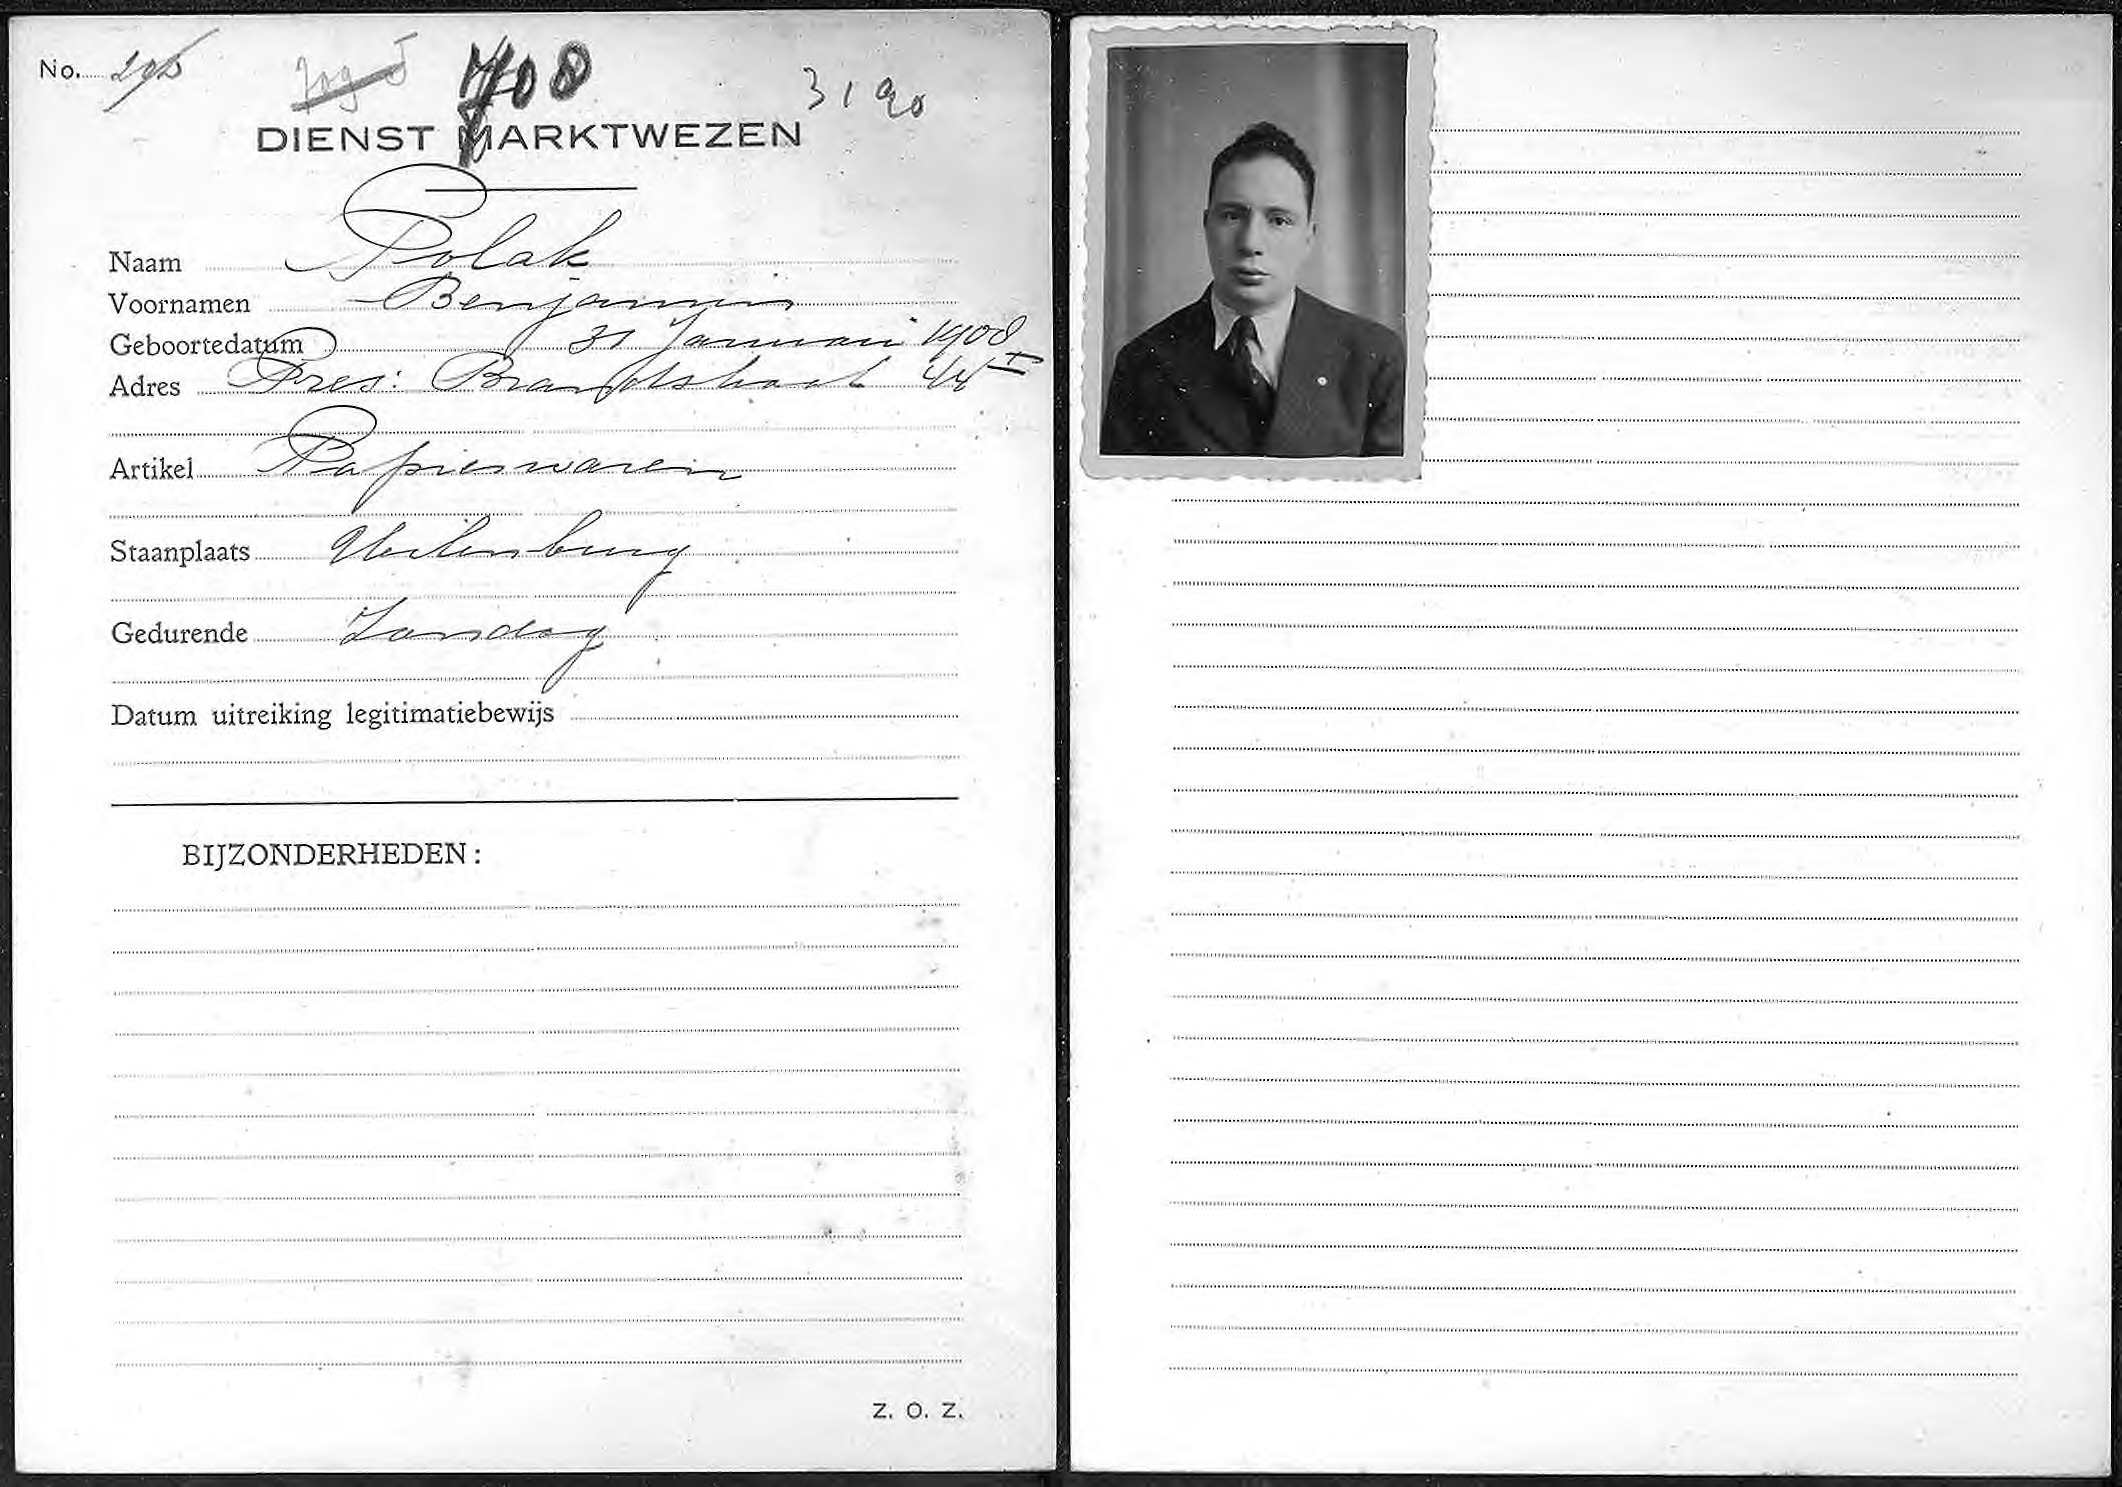 No.
708
3190
DIENST MARKTWEZEN
Naam Polak
Voornamen Benjamin
Geboortedatum 31 Januari 1908
Adres Pres: Brandtstraat I
Artikel Papierwaren
Staanplaats Uilenburg
Gedurende Zondag
Datum uitreiking legitimatiebewijs
BIJZONDERHEDEN:
Z. O. Z.